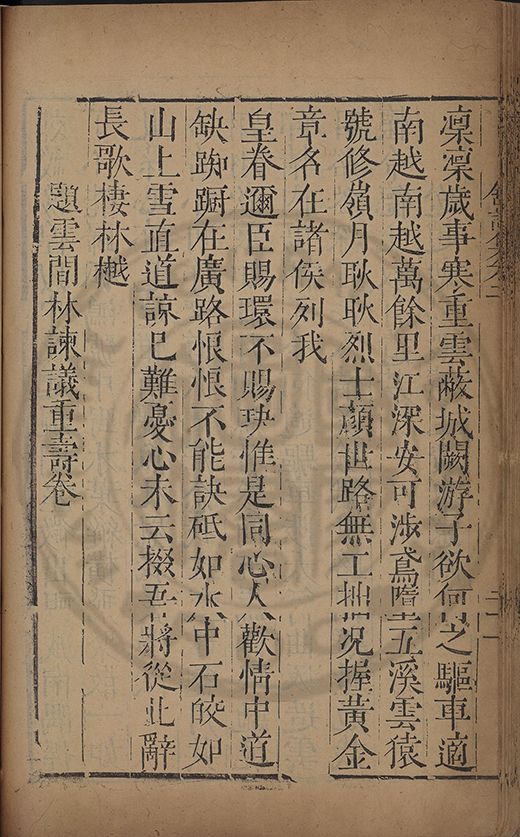 凜凜歲事寒重雲蔽城闕游子欲何之驅車適
南越南越萬餘里江深安可涉鳶墮五溪雲猿
號修嶺月耿耿烈士顏世路無工拙况握黃金
章名在諸侯列我
皇眷邇臣賜環不賜玦惟是同心人歡情中道
缺踟蹰在廣路悢悢不能訣砥如水中石皎如
山上雪直道諒已難憂心未云掇吾將從此辭
長歌棲林樾
題雲間林諫議重壽卷